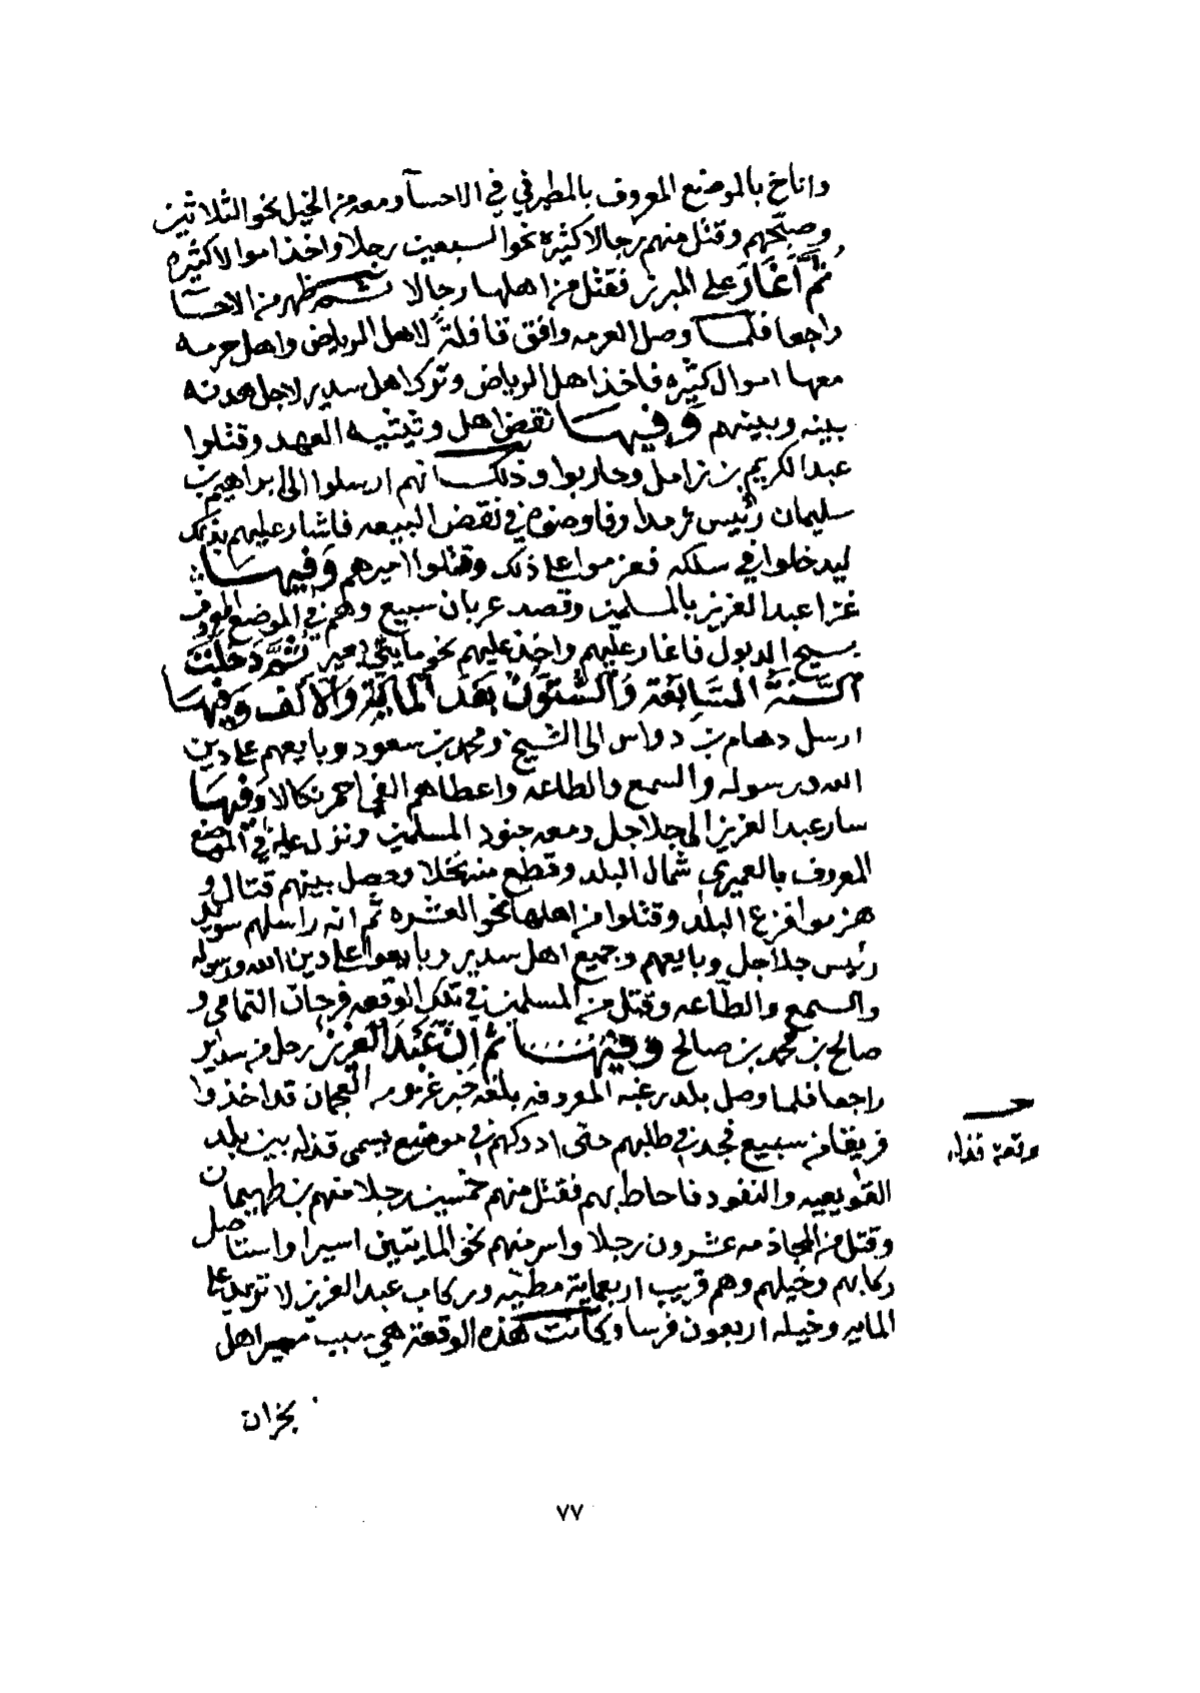 واناخ بالموضع المعروف بالمطيرفي في الاحسآ ومعه من الخيل نحو الثلاثين
وصبّحهم وقتل منهم رجالا كثيره نحو السبعين رجلا واخذ اموالا كثيره
ثُمَّ أَغَارَ على المبرز فقتل من اهلها رجالا ثم ظهر من الاحسا
راجعا فلما وصل العرمه وافق قافلة لاهل الرياض واهل حرمه
معها اموال كثيره فاخذ اهل الرياض وترك اهل سدير لاجل هدنه
بينه وبينهم وَفيهَا نقض اهل وثيثيه العهد وقتلوا
عبد الكريم بن زامل وحاربوا وذلك انهم ارسلوا الى ابراهيم بن
سليمان رئيس ثرمدا وفاوضوه في نقض البيعه فاشار عليهم بذلك
ليدخلوا في سلكه فعزموا على ذلك وقتلوا اميرهم وَفيهَا
غزا عبد العزيز بالمسلمين وقصد عربان سبيع وهم في الموضع المعروف
بسيح الدبول فاغار عليهم واخذ عليهم نحو مايتي بعير ثُمَّ دَخَلَت
السَّنَةُ السَّابِعَة وَالسِّتُّونْ بَعْدَ الْمايَةِ وَالْأَلْف وَفيهَا
ارسل دهام بن دواس الى الشيخ ومحمد بن سعود وبايعهم على دين
الله ورسوله والسمع والطاعه واعطاهم الفي احمر نكالا وَفيهَا
سار عبد العزيز الى جلاجل ومعه جنود المسلمين ونزل عليه في الموضع
المعروف بالعميري شمال البلد وقطع منه نخلا وحصل بينهم قتال و
هزموا فزع البلد وقتلوا من اهلها نحو العشره ثم انه راسلهم سويد
رئيس جلاجل وبايعهم وجميع اهل سدير وبايعوا على دين الله ورسوله
والسمع والطّاعه وقتل من المسلمين في تلك الوقعه فرحان التمامي و
صالح بن محمد بن صالح وَفيهَا ثم اِنَّ عَبْدَ الْعَزيز رحل من سدير
راجعا فلما وصل بلد رغبه المعروفه بلغه خبر غزو من العجمان قد اخذوا
فريقا من سبيع فجد في طلبهم حتى ادركهم في موضع يسمى قذله بين بلد
القويعيه والنفود فاحاط بهم فقتل منهم خمسين رجلا منهم بن طهيمان
وقتل من المجاذمه عشرون رجلا واسر منهم نحو المايتين اسيرا واستاصل
ركابهم وخيلهم وهم قريب اربعماية مطيّه وركاب عبد العزيز لا تزيد على
المايه وخيله اربعون فرسا وكانت هذه الوقعة هي سبب مسير اهل
نجران
وقعة قذله
٧٧